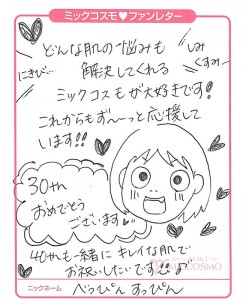 ミックコスモ♥ファンレター
どんな肌の悩みも
にきび…
しみ
くすみ…
解決してくれる
ミックコスモが大好きです!
これからもず〜〜っと応援して
います!!
30th
おめでとう
ございます♥
40thも一緒にキレイな肌で
お祝いしたいです!!♪
COSMO
ニックネーム
べっぴん すっぴん